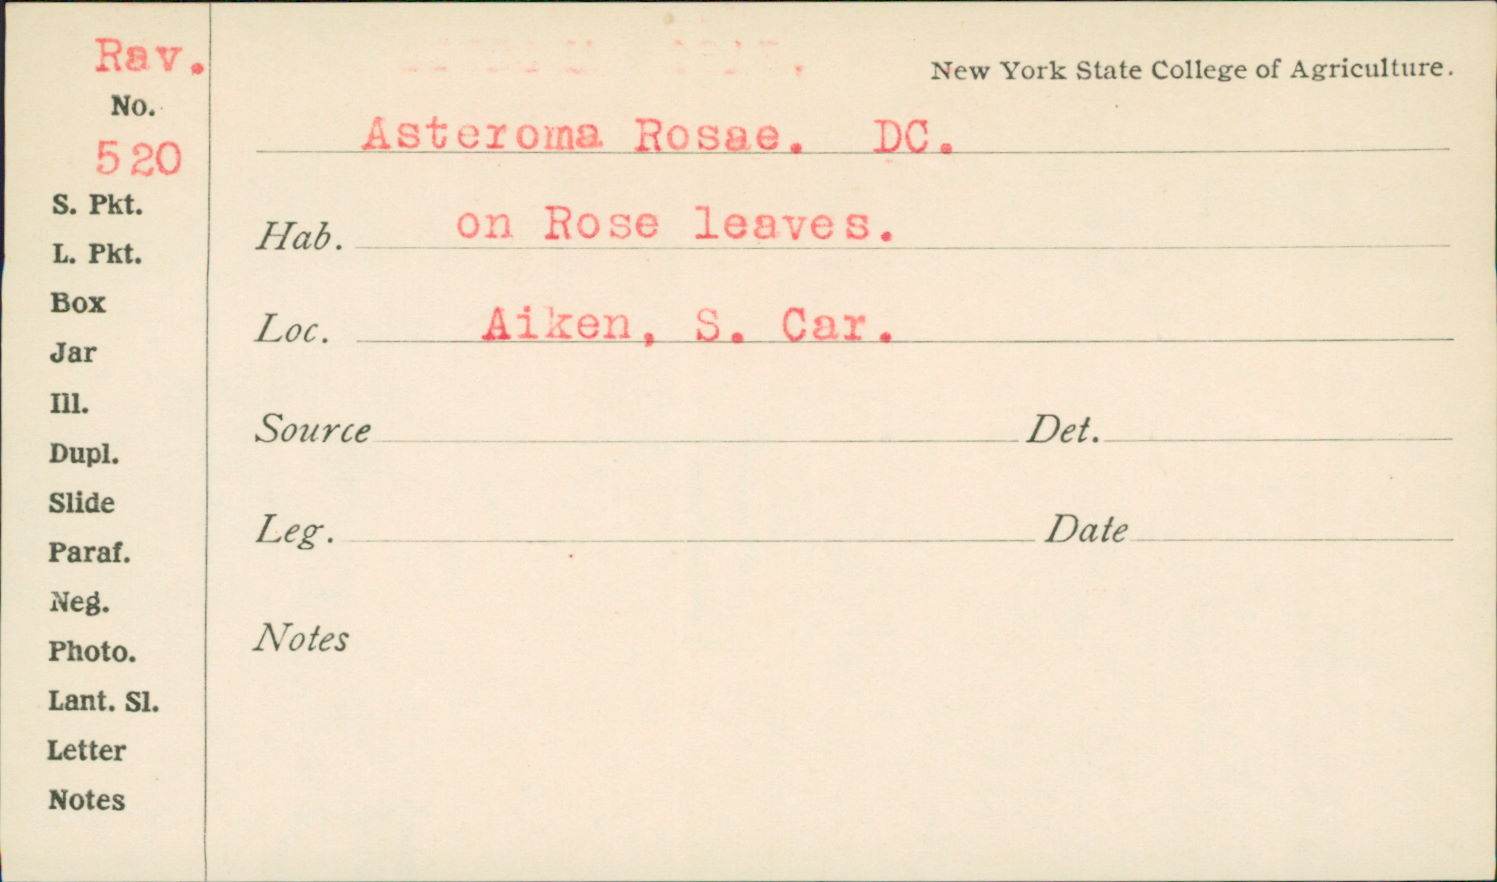 Rav.
No.
520
S. Pkt.
L. Pkt.
Box
Jar
Ill.
Dupl.
Slide
Paraf.
Neg.
Photo.
Lant. Sl.
Letter
Notes
New York State College of Agriculture.
Asteroma Rosae. DC.
Hab. on Rose leaves.
Loc. Aiken, S. Car.
Source Det.
Leg. Date
Notes